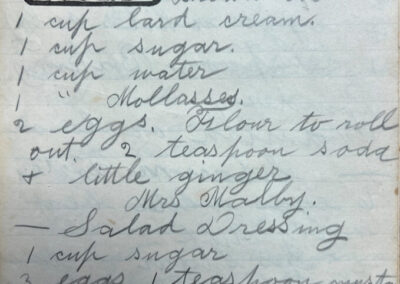 1 cup lard cream.
1 cup sugar.
1 cup water
1 " Mollasses.
2 eggs. Flour to roll
out. 2 teaspoon soda
& little ginger
Mrs Malby.
— Salad Dressing
1 cup sugar
3 eggs 1 teaspoon must